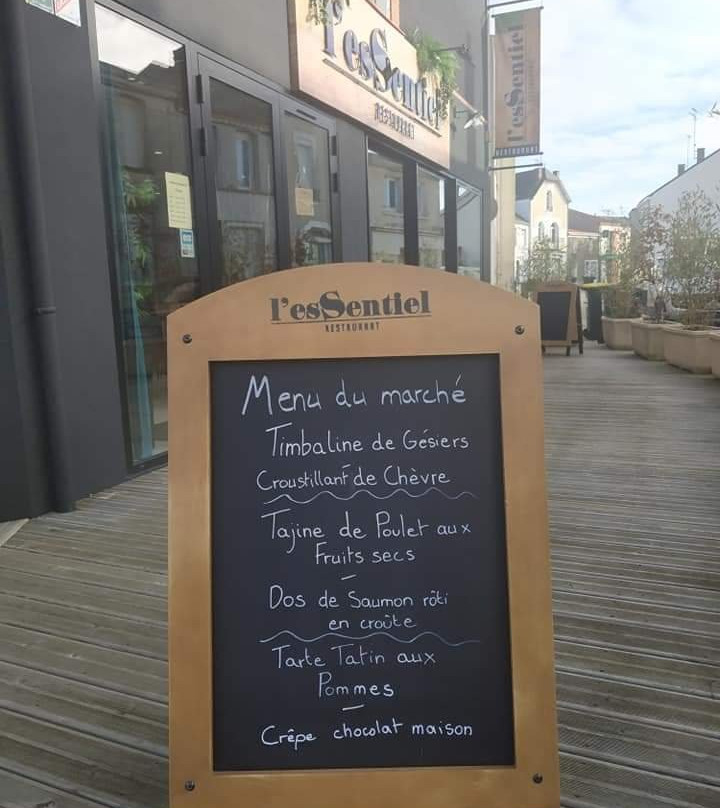 l'esSentiel
RESTAURANT
l'esSentiel
RESTAURANT
l'esSentiel
RESTAURANT
Menu du marché
Timbaline de Gésiers
Croustillant de Chèvre
Tajine de Poulet aux
Fruits secs
Dos de Saumon rôti
en croûte
Tarte Tatin aux
Pommes
Crêpe chocolat maison